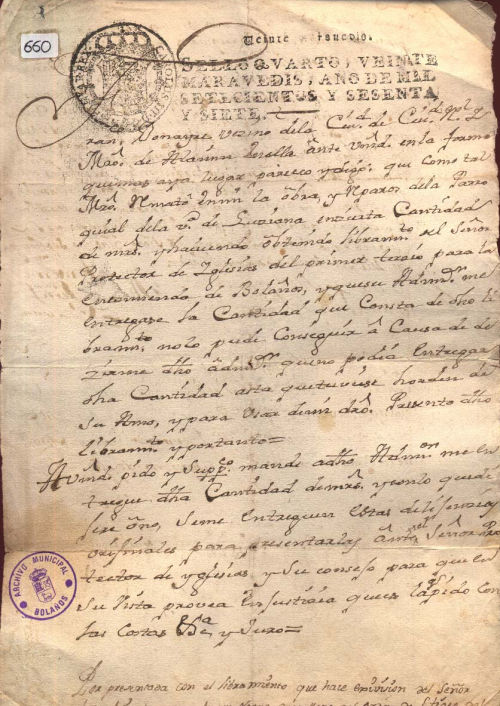 660
Veinte maravedis.
SELLO QVARTO, VEINTE
MARAVEDIS, AÑO DE MIL
SETECIENTOS Y SESENTA
Y SIETE.
Vezino dela Ciud. de Ciud. Rl. y
Mro. de ante vmd. en la forma
que mas aya lugar parezco y digo. que como tal
Mro. Remate en mi la obra, y Reparos dela Parro
quial dela va. de Luziana en zierta Cantidad
de mrs. y haviendo obtenido libramto. del Señor
Protector de Yglesias del primer terzio para la
Encomienda de Bolaños, y que su Admor. me
entregase la Cantidad que Consta de dho li
bramto. no lo pude Conseguir á Causa de de
zirme dho Admor. que no podia Entregar
dha Cantidad asta que tuviese horden de
su Amo, y para Usar de mi dro. Presento dho
libramto. y por tanto=
A vmd pido y suppco. mande a dho Admor. me en
tregue dha Cantidad de mrs. y
se me entreguen estas dilijenzias
orijinales para presentarlas ante el Señor Pro
tector de Yglesias, y su consejo para que en
su vista provea En justizia que es la pido con
las Costas &a. y Juro=
ARCHIVO MUNICIPAL
BOLAÑOS
Por presentada con el libramiento que hace espresion del Señor